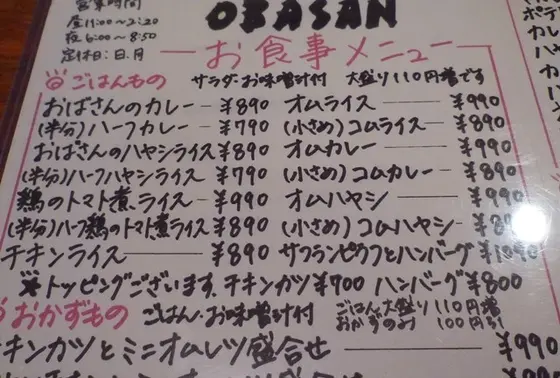 営業時間
OBASAN
昼11:00〜2:20
夜6:00〜8:50
定休日:日.月
お食事メニュー
ごはんもの サラダ・お味噌汁付 大盛り110円増です
おばさんのカレー ¥890
(半分)ハーフカレー ¥790
おばさんのハヤシライス ¥890
(半分)ハーフハヤシライス ¥790
鶏のトマト煮ライス ¥990
(半分)ハーフ鶏のトマト煮ライス ¥890
チキンライス ¥890
オムライス ¥990
(小さめ)コムライス ¥890
オムカレー ¥990
(小さめ)コムカレー ¥890
オムハヤシ ¥990
(小さめ)コムハヤシ
サフランピラフとハンバーグ
※トッピングございます。チキンカツ¥700 ハンバーグ¥800
おかずもの ごはん・お味噌汁付
ごはん大盛り110円増
おかずのみ 100円引
チキンカツとミニオムレツ盛合せ ¥990